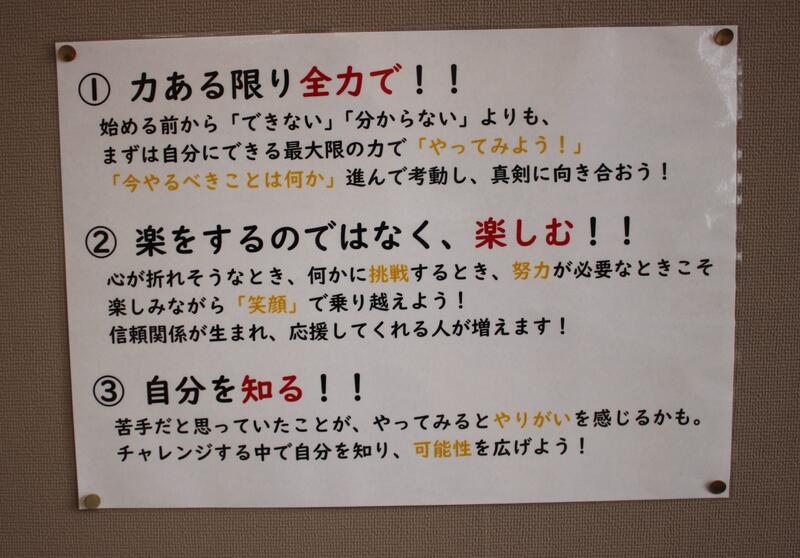 ① 力ある限り全力で！！
始める前から「できない」「分からない」よりも、
まずは自分にできる最大限の力で「やってみよう！」
「今やるべきことは何か」進んで考動し、真剣に向き合おう！
② 楽をするのではなく、楽しむ！！
心が折れそうなとき、何かに挑戦するとき、努力が必要なときこそ
楽しみながら「笑顔」で乗り越えよう！
信頼関係が生まれ、応援してくれる人が増えます！
③ 自分を知る！！
苦手だと思っていたことが、やってみるとやりがいを感じるかも。
チャレンジする中で自分を知り、可能性を広げよう！